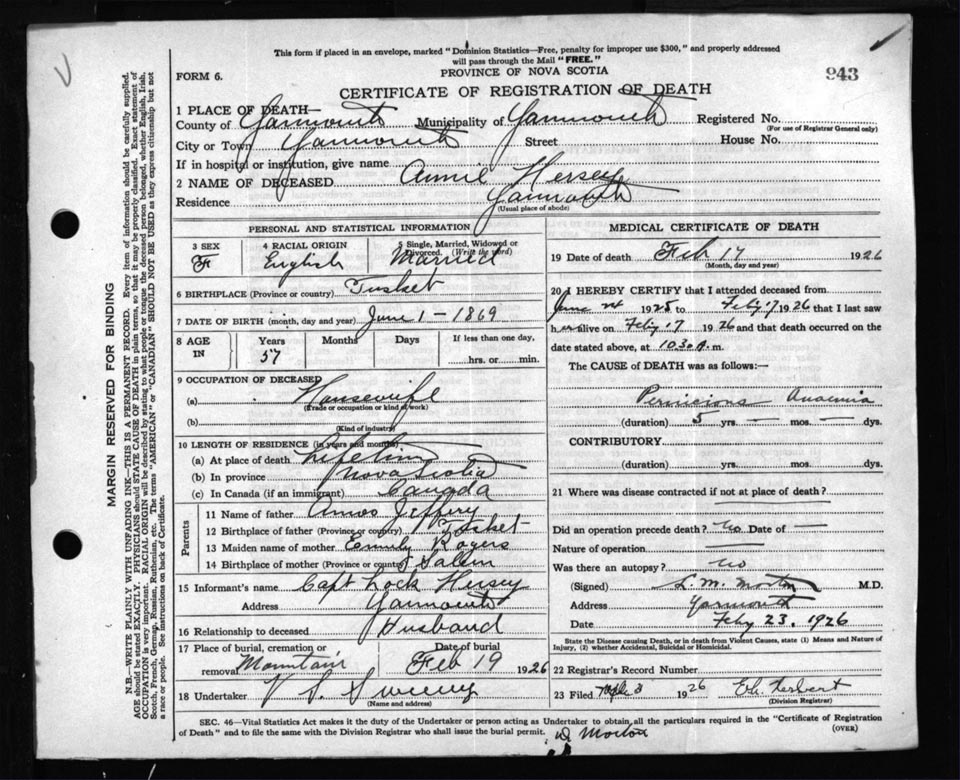 This form if placed in an envelope, marked "Dominion Statistics—Free, penalty for improper use $300," and properly addressed
will pass through the Mail "FREE."
FORM 6.
PROVINCE OF NOVA SCOTIA
943
CERTIFICATE OF REGISTRATION OF DEATH
1 PLACE OF DEATH—
County of Yarmouth Municipality of Yarmouth Registered No.
(For use of Registrar General only)
City or Town Yarmouth Street House No.
If in hospital or institution, give name
2 NAME OF DECEASED Annie Hersey
Residence Yarmouth
(Usual place of abode)
MARGIN RESERVED FOR BINDING
N.B.—WRITE PLAINLY WITH UNFADING INK—THIS IS A PERMANENT RECORD. Every item of information should be carefully supplied.
AGE should be stated EXACTLY. PHYSICIANS should STATE CAUSE OF DEATH in plain terms, so that it may be properly classified. Exact statement of
OCCUPATION is very important. RACIAL ORIGIN will be described by stating to what people or tongue the deceased person belonged, whether English, Irish,
Scotch, French, German, Russian, Ruthenian, etc. The terms "AMERICAN" or "CANADIAN" SHOULD NOT BE USED as they express citizenship but not
a race or people. See instructions on back of Certificate.
PERSONAL AND STATISTICAL INFORMATION
3 SEX 4 RACIAL ORIGIN 5 Single, Married, Widowed or
Divorced. (Write the word)
F English Married
6 BIRTHPLACE (Province or country) Tusket
7 DATE OF BIRTH (month, day and year) June 1 - 1869
8 AGE IN Years Months Days If less than one day,
57 hrs. or min.
9 OCCUPATION OF DECEASED
(a) Housewife
(Trade or occupation or kind of work)
(b)
(Kind of industry)
10 LENGTH OF RESIDENCE (in years and months)
(a) At place of death Lifetime
(b) In province Nova Scotia
(c) In Canada (if an immigrant) Canada
Parents
11 Name of father Amos Jeffery
12 Birthplace of father (Province or country) Tusket
13 Maiden name of mother Emily Rogers
14 Birthplace of mother (Province or country) Salem
15 Informant's name Capt Lock Hersey
Address Yarmouth
16 Relationship to deceased Husband
17 Place of burial, cremation or Date of burial
removal Mountain Feb 19 1926
18 Undertaker V S Sweeny
(Name and address)
MEDICAL CERTIFICATE OF DEATH
19 Date of death Feb 17 1926
(Month, day and year)
20 I HEREBY CERTIFY that I attended deceased from
June 1925 to Feby 17 1926 that I last saw
her alive on Feby 17 1926 and that death occurred on
date stated above, at 10.30 a.m.
The CAUSE of DEATH was as follows:—
Pernicious Anaemia
(duration) 5 yrs. mos. — dys.
CONTRIBUTORY
(duration) yrs. mos. dys.
21 Where was disease contracted if not at place of death?
Did an operation precede death? No Date of —
Nature of operation —
Was there an autopsy? no
(Signed) L. M. Morton M.D.
Address Yarmouth
Date Feby 23. 1926
State the Disease causing Death, or in death from Violent Causes, state (1) Means and Nature of
Injury, (2) whether Accidental, Suicidal or Homicidal.
22 Registrar's Record Number
23 Filed 3 1926 Herbert
(Division Registrar)
SEC. 46—Vital Statistics Act makes it the duty of the Undertaker or person acting as Undertaker to obtain all the particulars required in the "Certificate of Registration
of Death" and to file the same with the Division Registrar who shall issue the burial permit.
(OVER)
Dr Morton